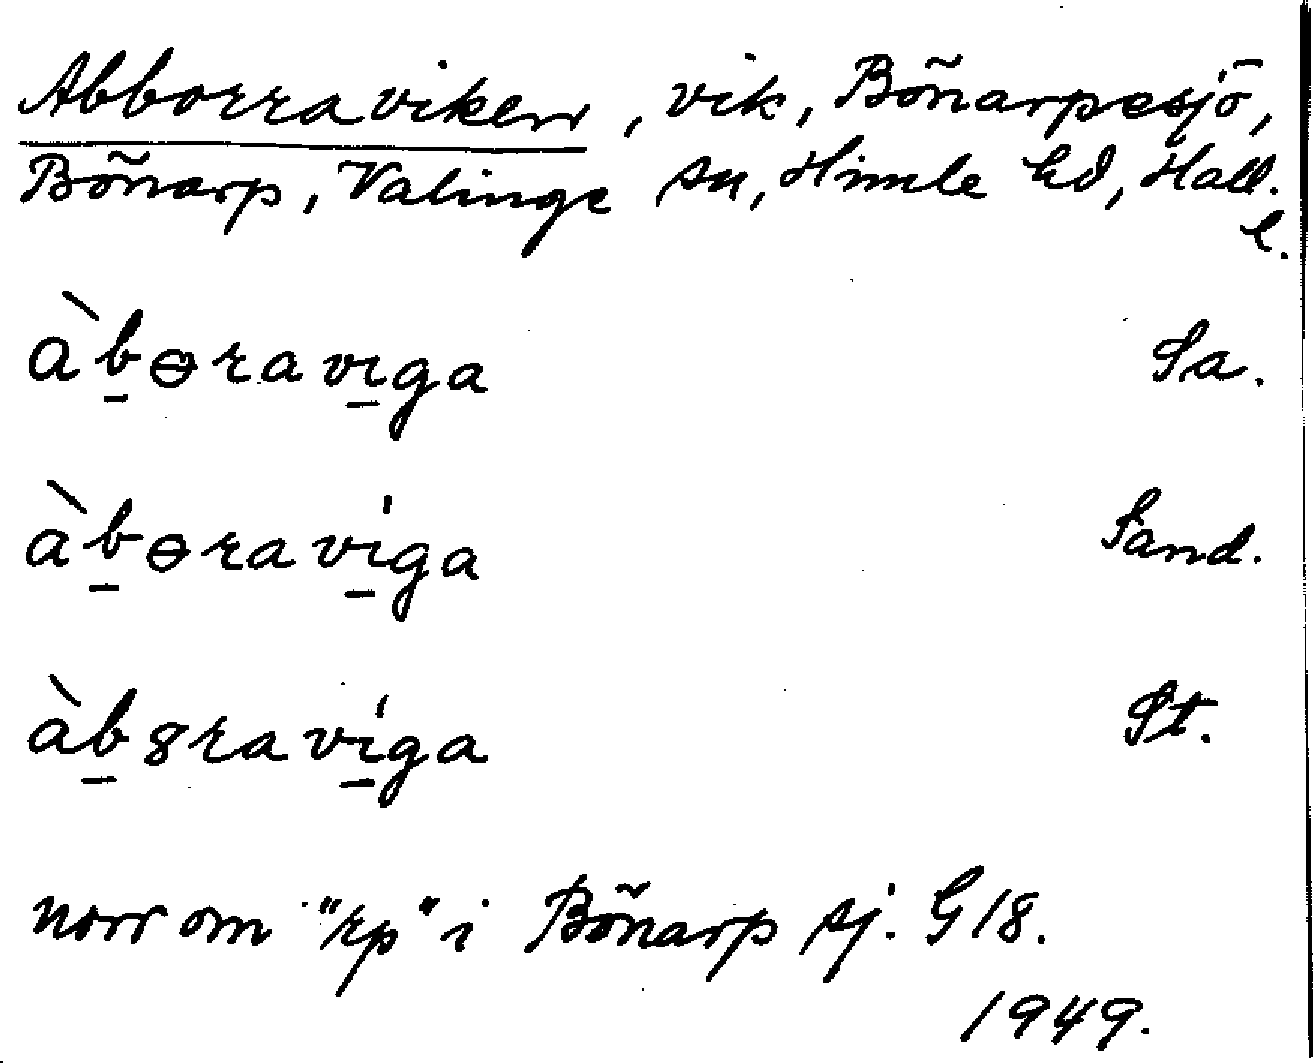 Abborraviken, vik, Bönarpesjö,
Bönarp, Valinge sn, Himle hd, Hall.
l.
àb̲ɵravi̲ga Sa.
àb̲ɵraví̲ga Sand.
àb̲8raví̲ga St.
norr om "rp" i Bönarp sj. G18.
1949.